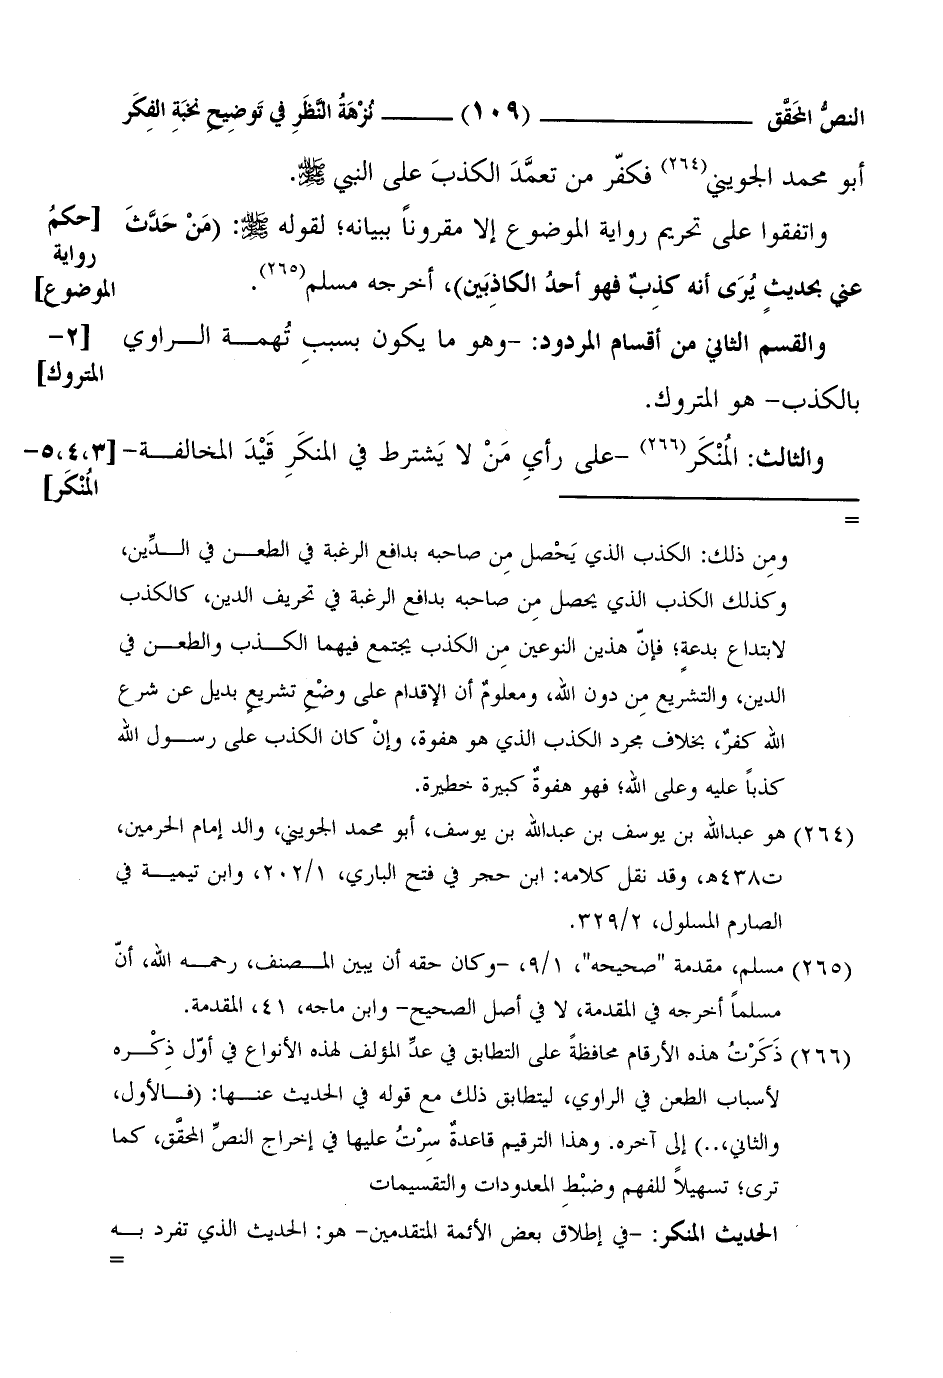 النصُّ المحَقَّق ـــــــــــــــــ (١٠٩) ـــــــــ نُزْهَةُ النَّظَرِ في تَوضِيحِ نخبَةِ الفِكَر
أبو محمد الجويني(٢٦٤) فكفّر من تعمَّدَ الكذبَ على النبي ﷺ.
واتفقوا على تحريم رواية الموضوع إلا مقروناً ببيانه؛ لقوله ﷺ: (مَنْ حَدَّثَ
[حكمُ
رواية
الموضوع]
عني بحديثٍ يُرَى أنه كذِبٌ فهو أحدُ الكاذِبَين)، أخرجه مسلم(٢٦٥).
والقسم الثاني من أقسام المردود: -وهو ما يكون بسببِ تُهمـــة الـــراوي
[٢-
المتروك]
بالكذب- هو المتروك.
والثالث: المُنْكَر(٢٦٦) -على رأي مَنْ لا يَشترط في المنكَرِ قَيْدَ المخالفــة-
[٣،٤،٥-
المُنْكَر]
=
ومِن ذلك: الكذب الذي يَحْصل مِن صاحبه بدافع الرغبة في الطعــن في الــدِّين،
وكذلك الكذب الذي يحصل مِن صاحبه بدافع الرغبة في تحريف الدين، كالكذب
لابتداع بدعةٍ؛ فإنّ هذين النوعين مِن الكذب يجتمع فيهما الكــذب والطعــن في
الدين، والتشريع مِن دون الله، ومعلومٌ أن الإقدام على وضْعِ تشريعٍ بديل عن شرع
الله كفرٌ، بخلاف مجرد الكذب الذي هو هفوة، وإنْ كان الكذب على رســول الله
كذباً عليه وعلى الله؛ فهو هفوةٌ كبيرة خطيرة.
(٢٦٤) هو عبدالله بن يوسف بن عبدالله بن يوسف، أبو محمد الجويني، والد إمام الحرمين،
ت٤٣٨هـ، وقد نقل كلامه: ابن حجر في فتح الباري، ٢٠٢/١، وابن تيميــة في
الصارم المسلول، ٣٢٩/٢.
(٢٦٥) مسلم، مقدمة "صحيحه"، ٩/١، -وكان حقه أن يبين المــصنف، رحمــه الله، أنّ
مسلماً أخرجه في المقدمة، لا في أصل الصحيح- وابن ماجه، ٤١، المقدمة.
(٢٦٦) ذَكَرْتُ هذه الأرقام محافظةً على التطابق في عدِّ المؤلف لهذه الأنواع في أوّل ذِكْــره
لأسباب الطعن في الراوي، ليتطابق ذلك مع قوله في الحديث عنــها: (فــالأول،
والثاني،..) إلى آخره. وهذا الترقيم قاعدةٌ سِرْتُ عليها في إخراج النصِّ المحقَّق، كما
ترى؛ تسهيلاً للفهم وضبْطِ المعدودات والتقسيمات
الحديث المنكر: -في إطلاق بعض الأئمة المتقدمين- هو: الحديث الذي تفرد بــه
=